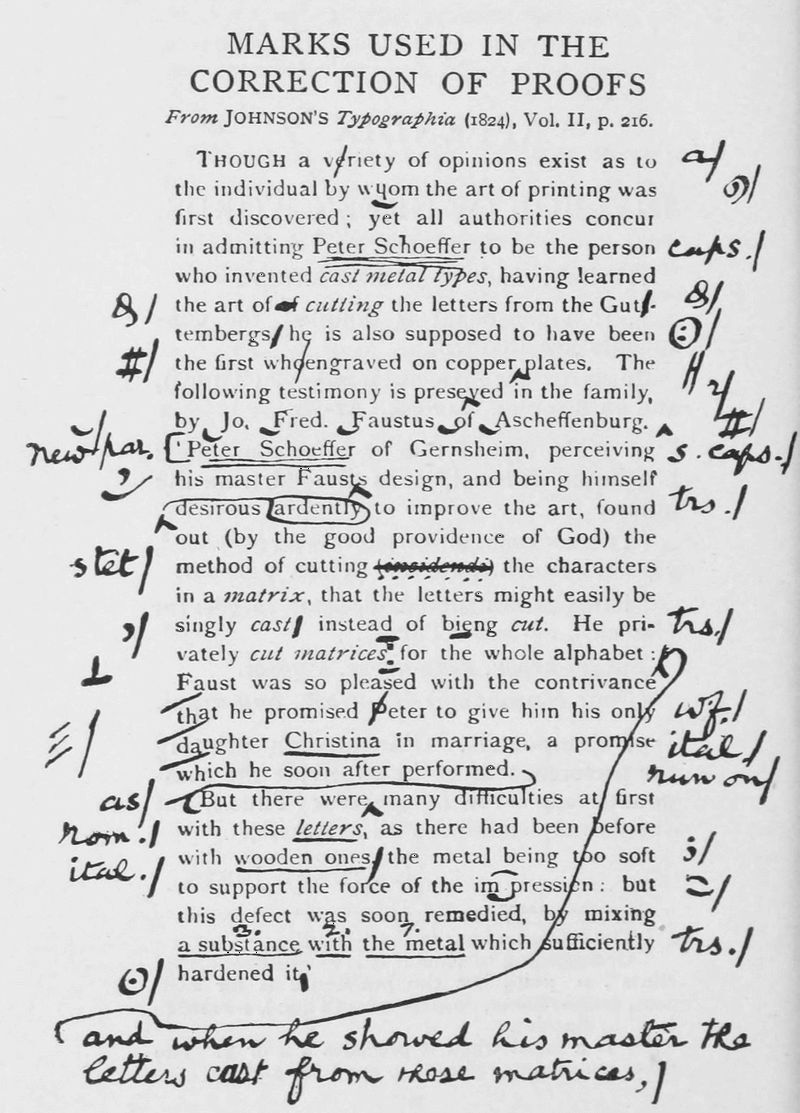 MARKS USED IN THE
CORRECTION OF PROOFS
From JOHNSON'S Typographia (1824), Vol. II, p. 216.
THOUGH a v/riety of opinions exist as to a/
the individual by wyom the art of printing was 9/
first discovered; yet all authorities concur
in admitting Peter Schoeffer to be the person caps./
who invented cast metal types, having learned
the art of cutting the letters from the Gut/-
tembergs/ he is also supposed to have been ⊙/
#/ the first who engraved on copper plates. The
following testimony is preseved in the family, r/
by Jo. Fred. Faustus of Ascheffenburg. #/
new par. [Peter Schoeffer of Gernsheim, perceiving s. caps./
his master Fausts design, and being himself
desirous ardently to improve the art, found trs./
out (by the good providence of God) the
stet/ method of cutting (incidendi) the characters
in a matrix, that the letters might easily be
,/ singly cast/ instead of bieng cut. He pri- trs./
⊥ vately cut matrices for the whole alphabet:
Faust was so pleased with the contrivance
that he promised peter to give him his only wf./
daughter Christina in marriage, a promise ital/
which he soon after performed. run on/
as/ But there were many difficulties at first
rom./ with these letters, as there had been before
ital./ with wooden ones/ the metal being too soft ;/
to support the force of the im pression: but
this defect was soon remedied, by mixing
3. 2. 1.
a substance with the metal which sufficiently trs./
⊙/ hardened it,
and when he showed his master the
letters cast from these matrices,/